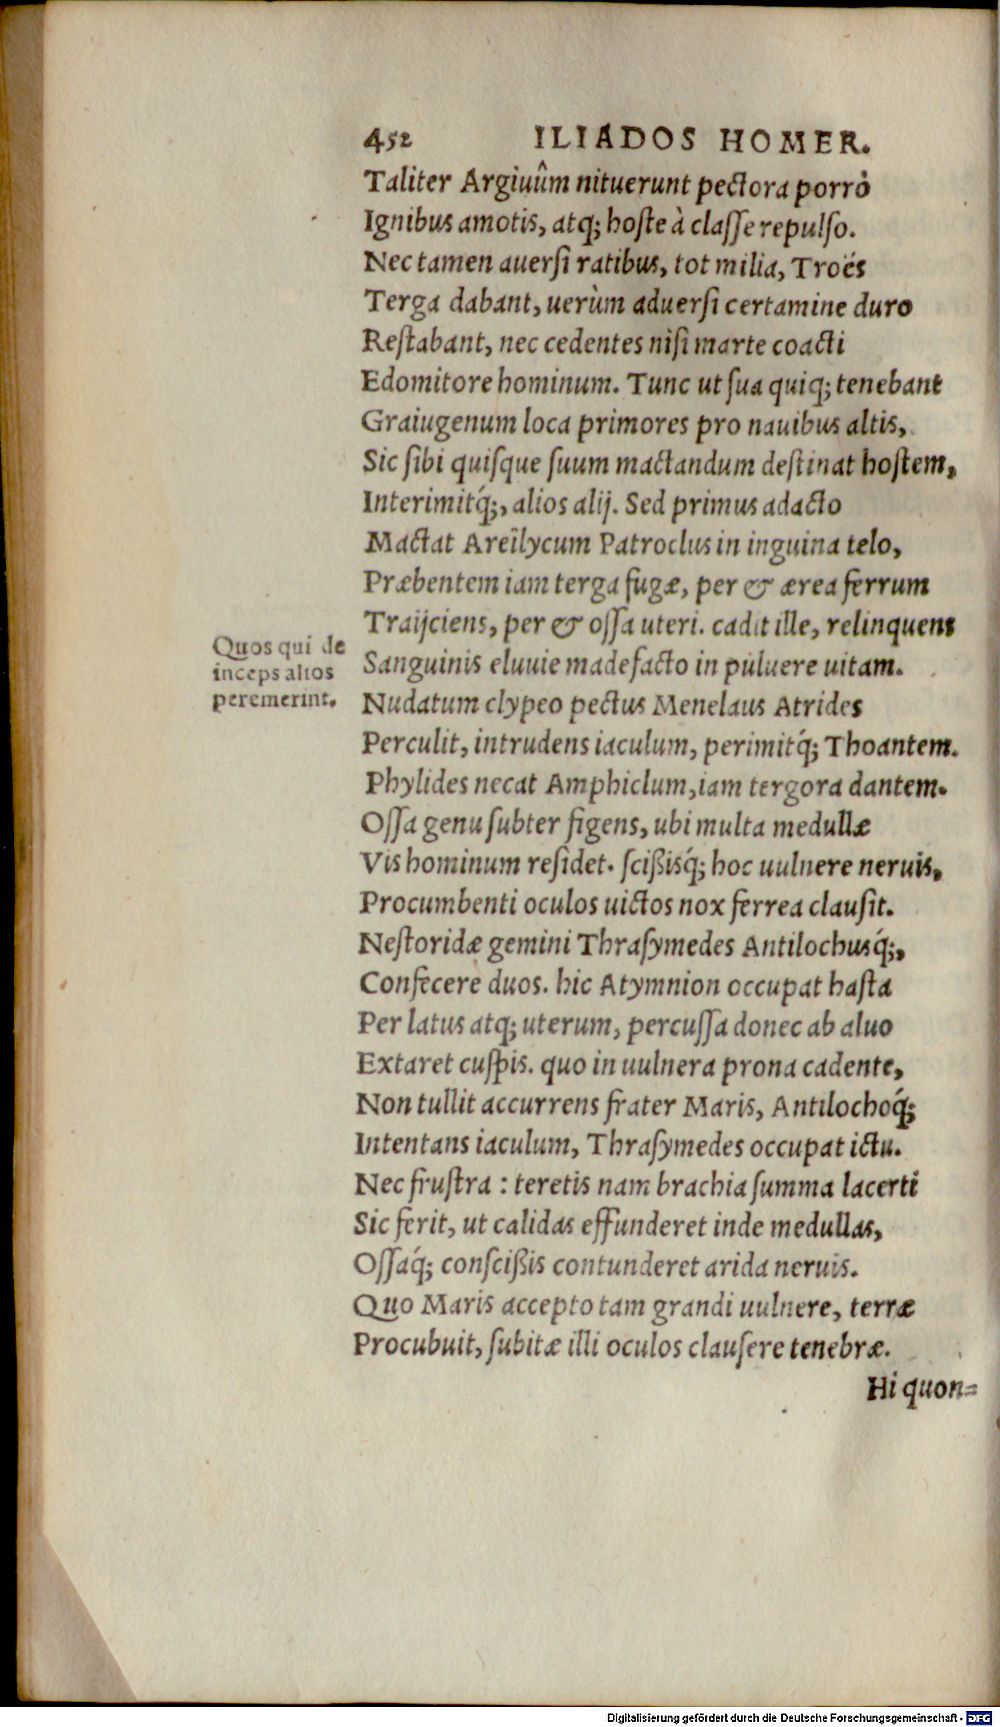 452 ILIADOS HOMER.
Taliter Argiuûm nituerunt pectora porrò
Ignibus amotis, atq; hoste à classe repulso.
Nec tamen auersi ratibus, tot milia, Troës
Terga dabant, uerùm aduersi certamine duro
Restabant, nec cedentes nisi marte coacti
Edomitore hominum. Tunc ut sua quiq; tenebant
Graiugenum loca primores pro nauibus altis,
Sic sibi quisque suum mactandum destinat hostem,
Interimitq́;, alios alij. Sed primus adacto
Mactat Areïlycum Patroclus in inguina telo,
Præbentem iam terga fugæ, per & ærea ferrum
Traijciens, per & ossa uteri. cadit ille, relinquens
Sanguinis eluuie madefacto in puluere uitam.
Quos qui de
inceps alios
peremerint.
Nudatum clypeo pectus Menelaus Atrides
Perculit, intrudens iaculum, perimitq́; Thoantem.
Phylides necat Amphiclum, iam tergora dantem.
Ossa genu subter figens, ubi multa medullæ
Vis hominum residet. scißisq́; hoc uulnere neruis,
Procumbenti oculos uictos nox ferrea clausit.
Nestoridæ gemini Thrasymedes Antilochusq́;,
Confecere duos. hic Atymnion occupat hasta
Per latus atq; uterum, percussa donec ab aluo
Extaret cuspis. quo in uulnera prona cadente,
Non tullit accurrens frater Maris, Antilochoq́;
Intentans iaculum, Thrasymedes occupat ictu.
Nec frustra : teretis nam brachia summa lacerti
Sic ferit, ut calidas effunderet inde medullas,
Ossaq́; conscißis contunderet arida neruis.
Quo Maris accepto tam grandi uulnere, terræ
Procubuit, subitæ illi oculos clausere tenebræ.
Hi quon-
Digitalisierung gefördert durch die Deutsche Forschungsgemeinschaft - DFG